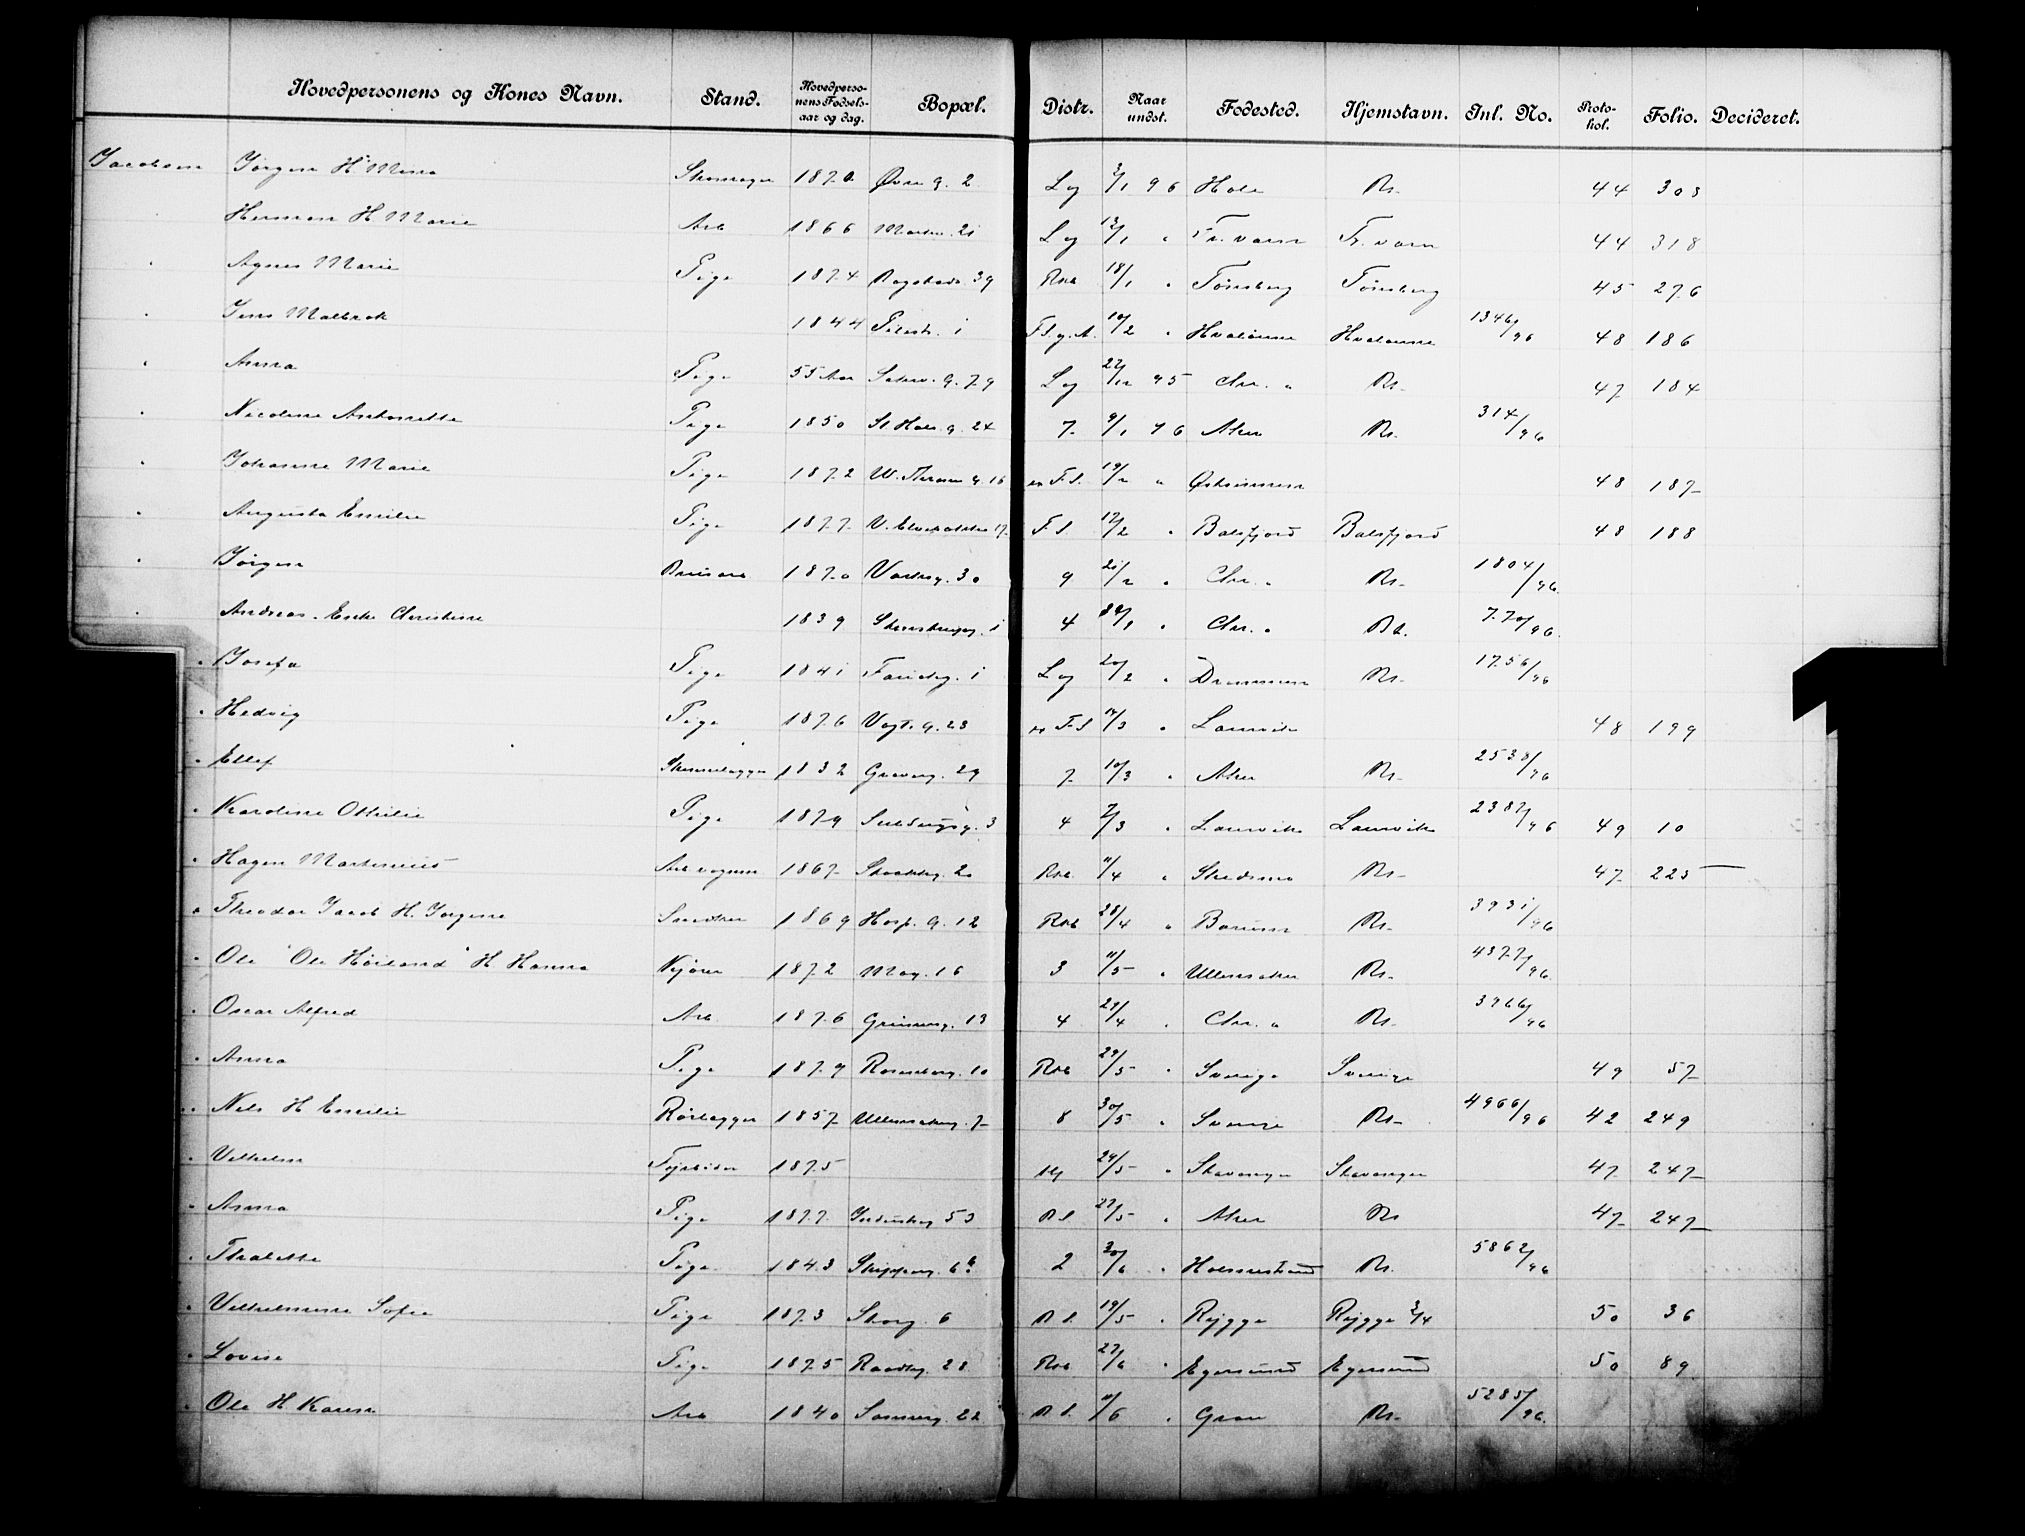 Hovedpersonens og Kones Navn. Stand. Hovedperso-nens Fødsels-aar og dag. Bopæl. Distr. Naar undst. Fødested. Hjemstavn. Inl. No. Proto-kol. Folio. Decideret.
Jacobsen Jørgen H Mina Skomager 1870 Øvre g. 2 Lg 2/1 96 Hole Kr. 44 303
Herman H Marie Arb 1866 21 Lg 12/1 " Fr. værn Fr. værn 44 318
" Agnes Marie Pige 1874 39 18/1 " Tønsberg Tønsberg 45 276
" Jens Malbrok 1844 Pilestr. 1 10/2 " Hvaløerne Hvaløerne 1346/96 48 186
" Anna Pige 55 Aar 79 Lg 22/12 95 Chr. " Kr. 47 184
" Nicoline Antonette Pige 1850 St Hals. g. 24 7 9/1 96 Aker Kr. 314/96
" Johanne Marie Pige 1872 W. Thranes g. 16 F.S. 19/2 " 48 187
" Augusta Emilie Pige 1877 V. Elvebakke 17 F.S. 17/2 " Balsfjord Balsfjord 48 188
" Jørgen 1870 30 9 21/2 " Chr. " Kr. 1804/96
" Andreas. Enke Christine 1839 Stensberg. 1 4 24/1 " Chr. " Kr. 770/96
" Josefa Pige 1841 1 Lg 20/2 " Drammen Kr. 1756/96
" Hedvig Pige 1876 Vogt. g. 23 F.S 14/3 " Laurvik 48 199
" Ellef 1832 Graverg. 29 7 10/3 " Aker Kr. 2538/96
" Karoline Othilie Pige 1879 3 4 7/3 " Laurvik Laurvik 2387/96 49 10
" Hagen Martinius Arb vognm 1867 20 11/4 " Skedsmo Kr. 47 223
" Theodor Jacob H. Jørgine Snedker 1869 Hosp. g. 12 28/4 " Bærum Kr. 3931/96
" Ole "Ole Høiland" H Hanna Kjører 1872 16 3 11/5 " Ullensaker Kr. 4377/96
" Oscar Alfred Arb. 1876 Grünerg. 13 4 29/4 " Chr. " Kr. 3966/96
" Anna Pige 1879 Rosenborg. 10 29/5 " Sverige Sverige 49 57
" Nils H Emilie Rørlægger 1857 Ullensakerg. 7 8 30/5 " Sverige Kr. 4966/96 42 249
" Vilhelm Fyrbøter 1875 24/5 " Stavanger Stavanger 47 247
" Anna Pige 1877 53 27/5 " Aker Kr 47 247
" Thalette Pige 1843 Skipperg. 6b 2 30/6 " Holmestrand Kr. 5862/96
" Vilhelmine Sofie Pige 1873 Storg. 6 19/5 " Rygge Rygge 3/4 50 36
" Lovise Pige 1875 28 27/6 " Egersund Egersund 50 89
" Ole H Karen Arb 1840 22 11/6 " Gran Kr. 5285/96